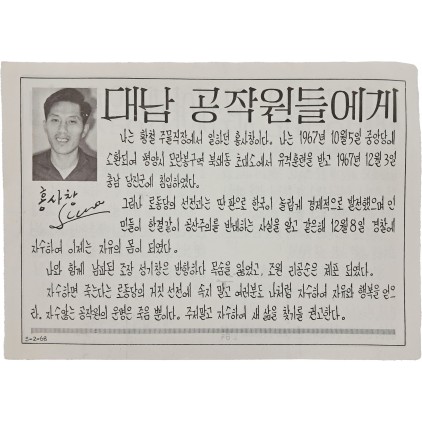 대남 공작원들에게
나는 황철 주물직장에서 일하던 홍사창이다. 나는 1967년 10월 5일 중앙당에
소환되어 평양시 모란봉구역 북새동 초대소에서 유격훈련을 받고 1967년 12월 3일
충남 당진군에 침입하였다.
그러나 로동당의 선전과는 딴판으로 한국이 놀랍게 경제적으로 발전했으며 인
민들이 한결같이 공산주의를 반대하는 사실을 알고 같은해 12월 8일 경찰에
자수하여 이제는 자유의 몸이 되였다.
나와 함께 남파된 조장 성기창은 반항하다 목숨을 잃었고, 조원 리공순은 체포 되었다.
자수하면 죽는다는 로동당의 거짓 선전에 속지 말고 여러분도 나처럼 자수하여 자유와 행복을 얻으
라. 자수않는 공작원의 운명은 죽음 뿐이다. 주저말고 자수하여 새 삶을 찾기를 권고한다.
홍사창